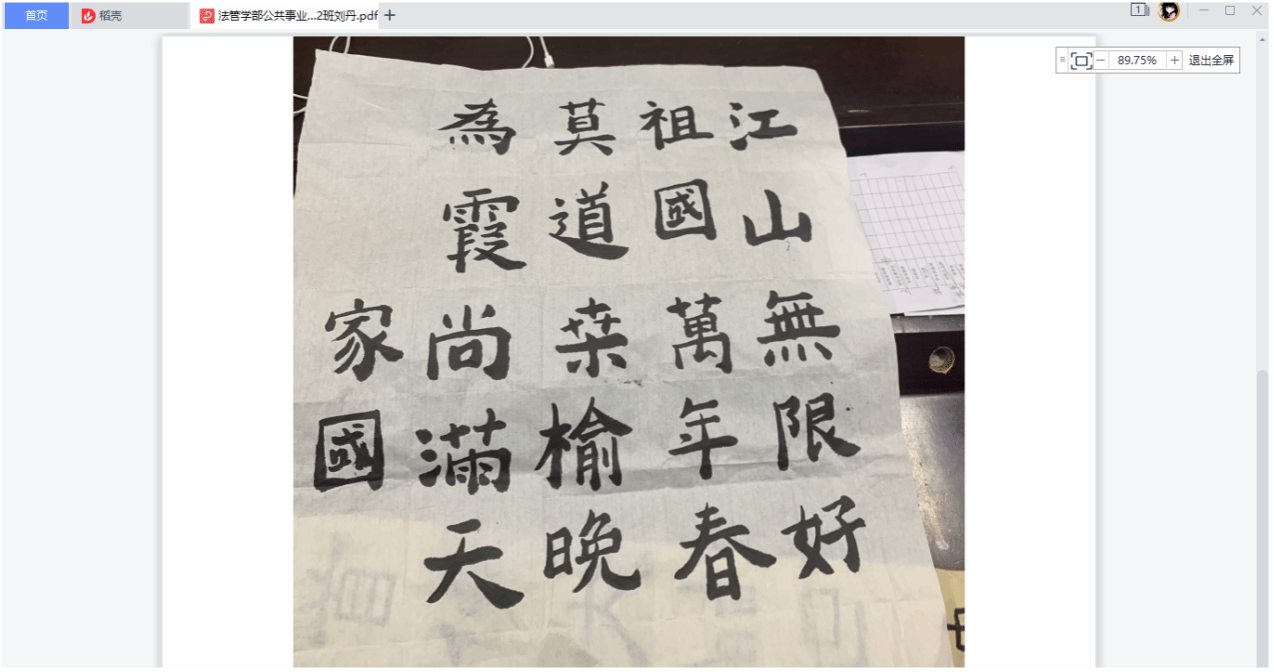 首页
稻壳
法管学部公共事业...2班刘丹.pdf
+
1
89.75%
退出全屏
江山無限好
祖國萬年春
莫道桒榆晚
為霞尚滿天
家國